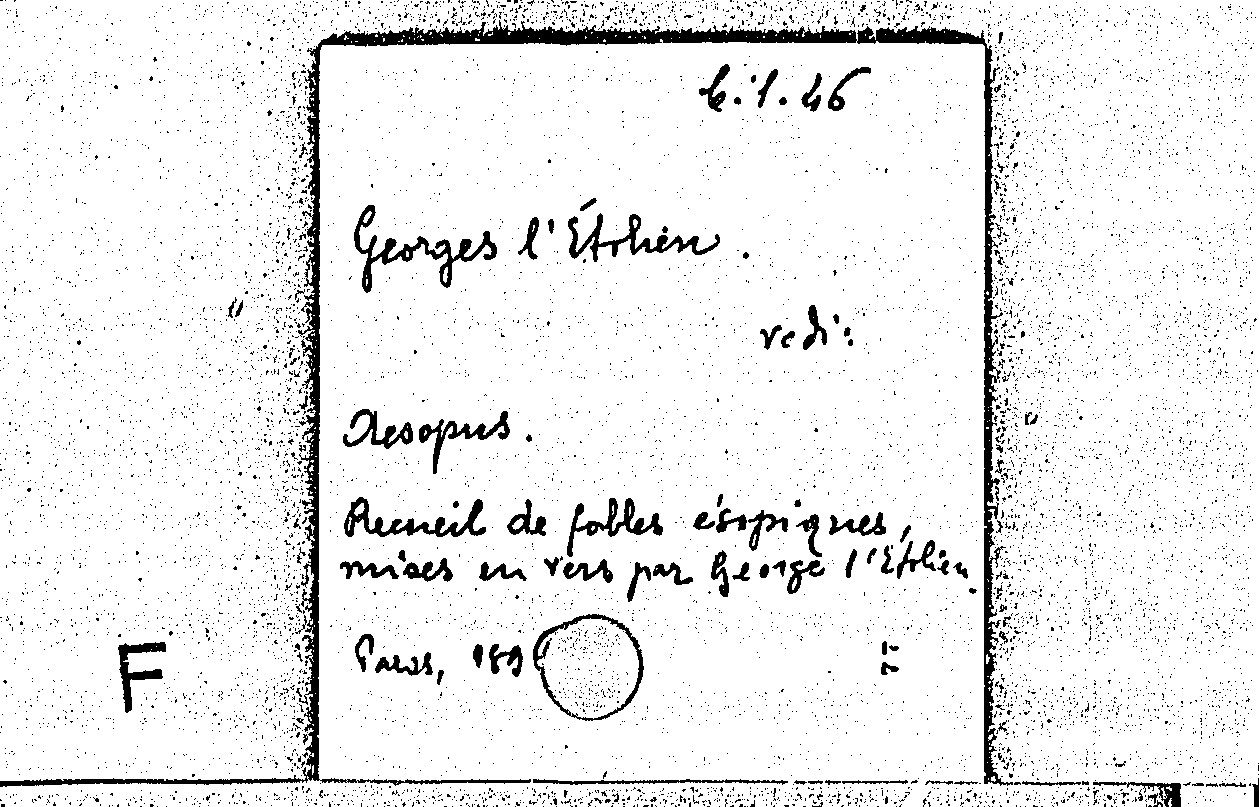 6.1.46
Georges l'Étolien.
vedi:
Aesopus.
Recueil de fables ésopiques,
mises en vers par George l'Etolien.
Paris, 189
F